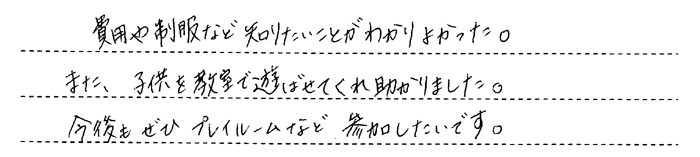 費用や制服など知りたいことがわかりよかった。
また、子供を教室で遊ばせてくれ助かりました。
今後もぜひプレイルームなど参加したいです。